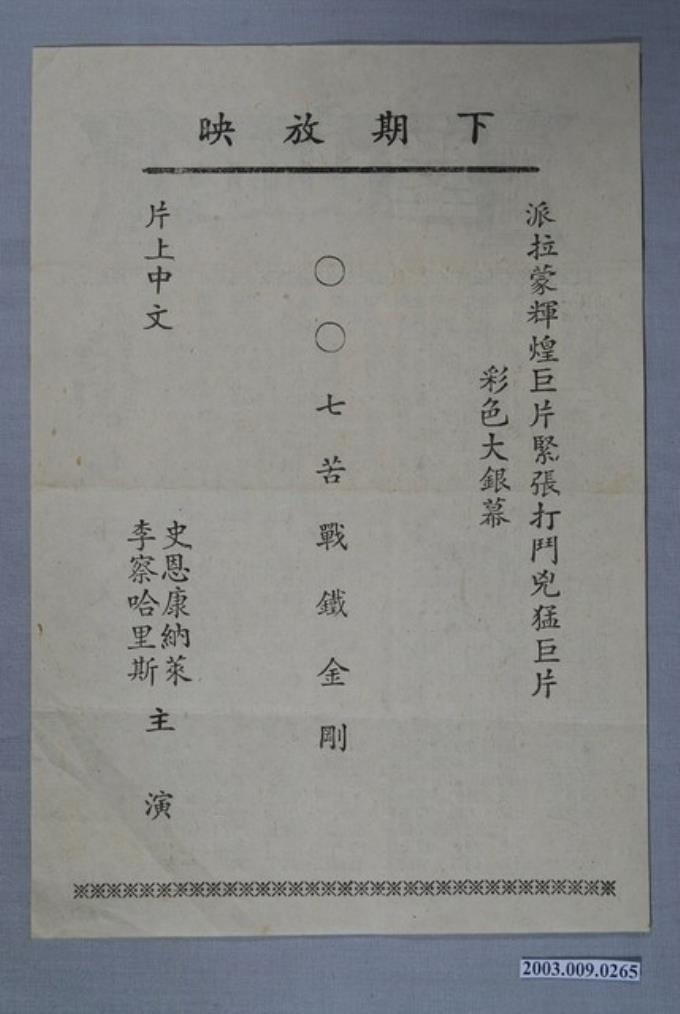 下期放映
派拉蒙輝煌巨片緊張打鬥兇猛巨片
彩色大銀幕
〇〇七苦戰鐵金剛
片上中文
史恩康納萊
李察哈里斯
主演
2003.009.0265